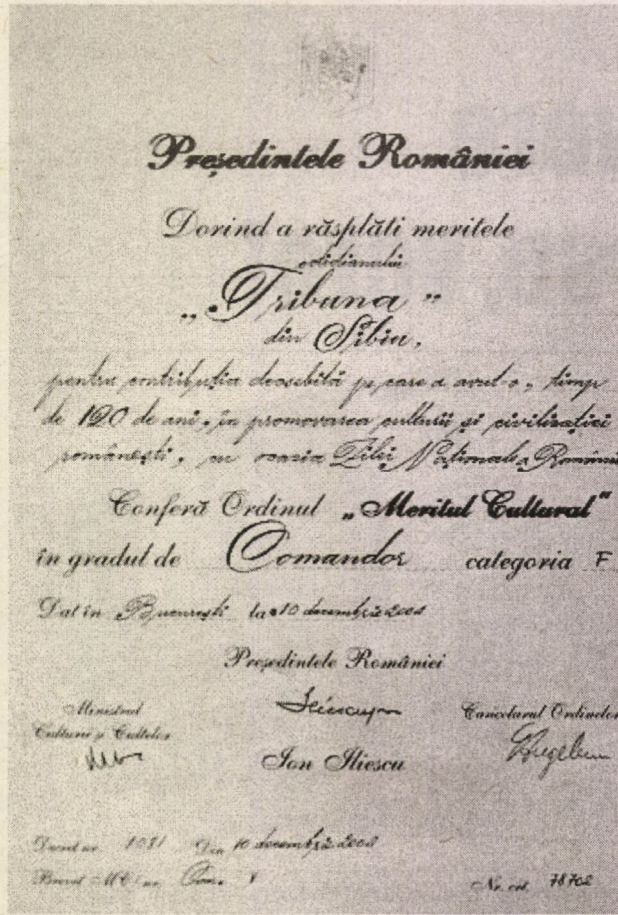 Președintele României
Dorind a răsplăti meritele
cotidianului
„Tribuna”
din Sibiu,
pentru contribuția deosebită pe care a avut-o, timp
de 120 de ani, în promovarea culturii și civilizației
românești, cu ocazia Zilei Naționale a României
Conferă Ordinul „Meritul Cultural”
în gradul de Comandor categoria F
Dat în București la 10 decembrie
Președintele României
Ministrul Cancelarul Ordinelor
Culturii și Cultelor
Ion Iliescu
Decret nr. 1081 Din 10 decembrie
Brevet nr. Nr. crt. 78702